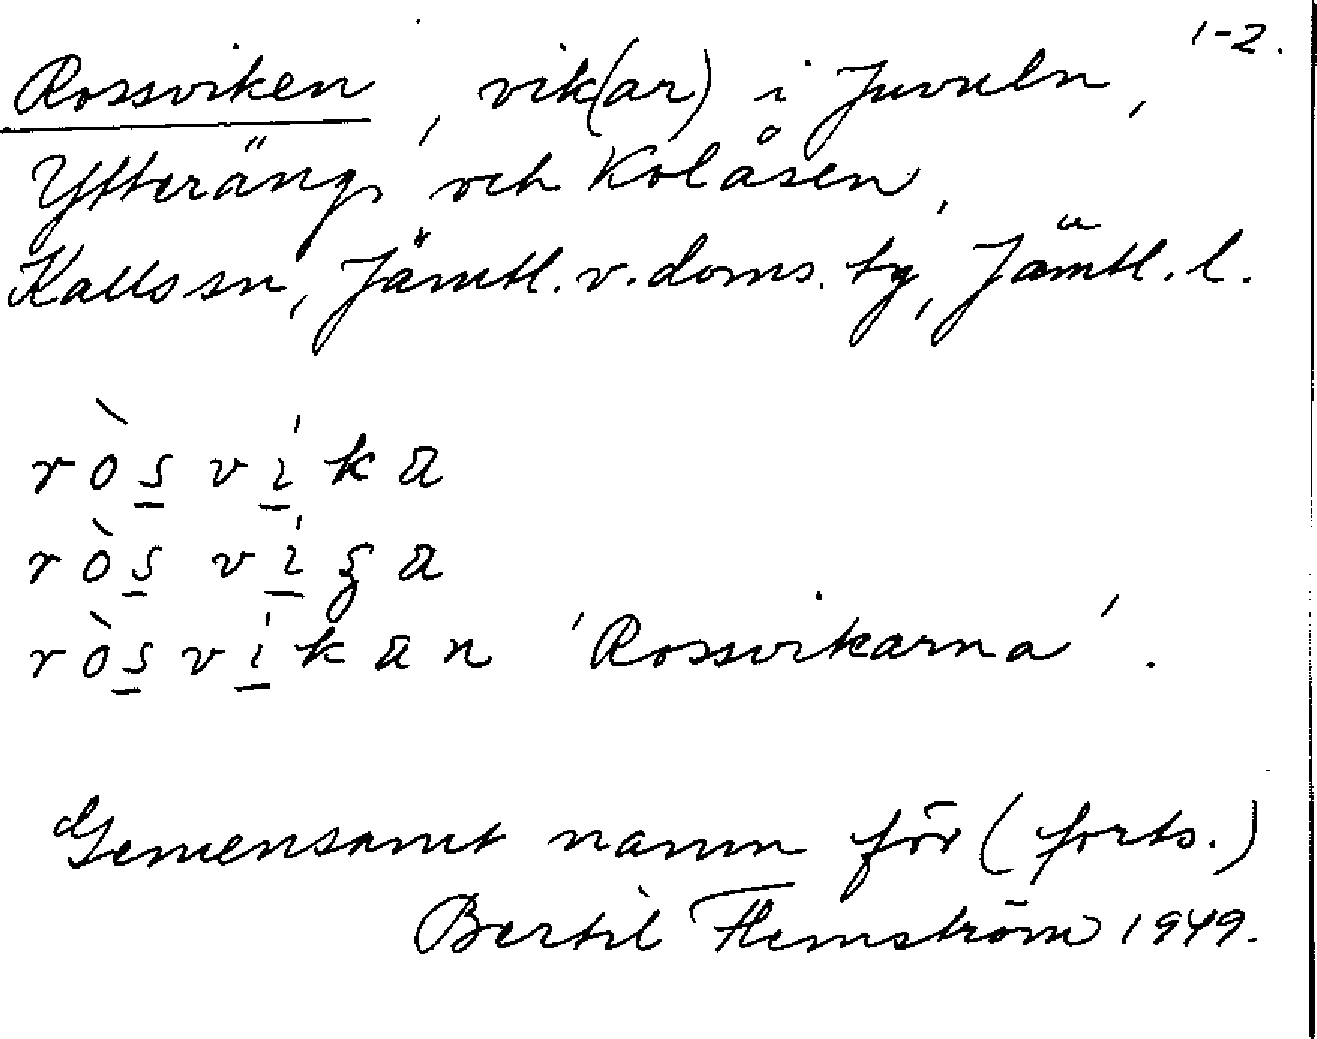 1-2.
Rossviken, vik(ar) i Juvuln,
Ytteräng och Kolåsen,
Kalls sn, Jämtl. v. doms. tg, Jämtl. l.
ròsví̱ka
ròs ví̱ga
ròsví̱kan 'Rossvikarna'.
Gemensamt namn för (forts.)
Bertil Flemström 1949.